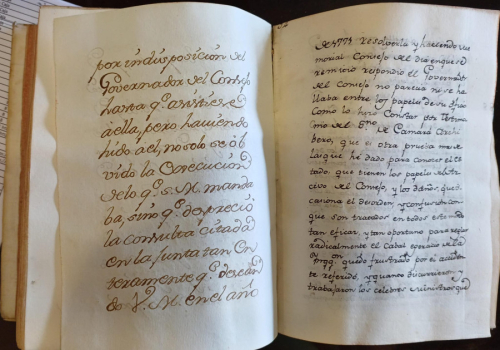 por indisposicion del
Governador del Consejo
hasta q.e asistiese
a ella, pero haviendo
hido a el, no solo se ol
vido la execucion
de lo q.e S. M. manda
ba, sino q.e despreció
la consulta citada
en la junta tan en
teramente q.e desean
do V. M. en el año
de 1771. resolverla y haciendo
moral Consejo del dia en que se
remitio respondio el Governador
del Consejo no parecia ni se ha
llaba entre los papeles de su oficio
como lo hizo constar por testimo
nio del Es.no de Camara
que es otra prueba mas de
la que he dado para conocer el es
tado, que tienen los papeles
del Consejo, y los daños, que
ocasiona el desorden, y confusion con
que son tratados en todo este
tan eficaz, y tan oportuno para
radicalmente el Cabal
quedo frustrado por el acciden
te referido, y quanto discurrieron y
trabajaron los celebres ministros que